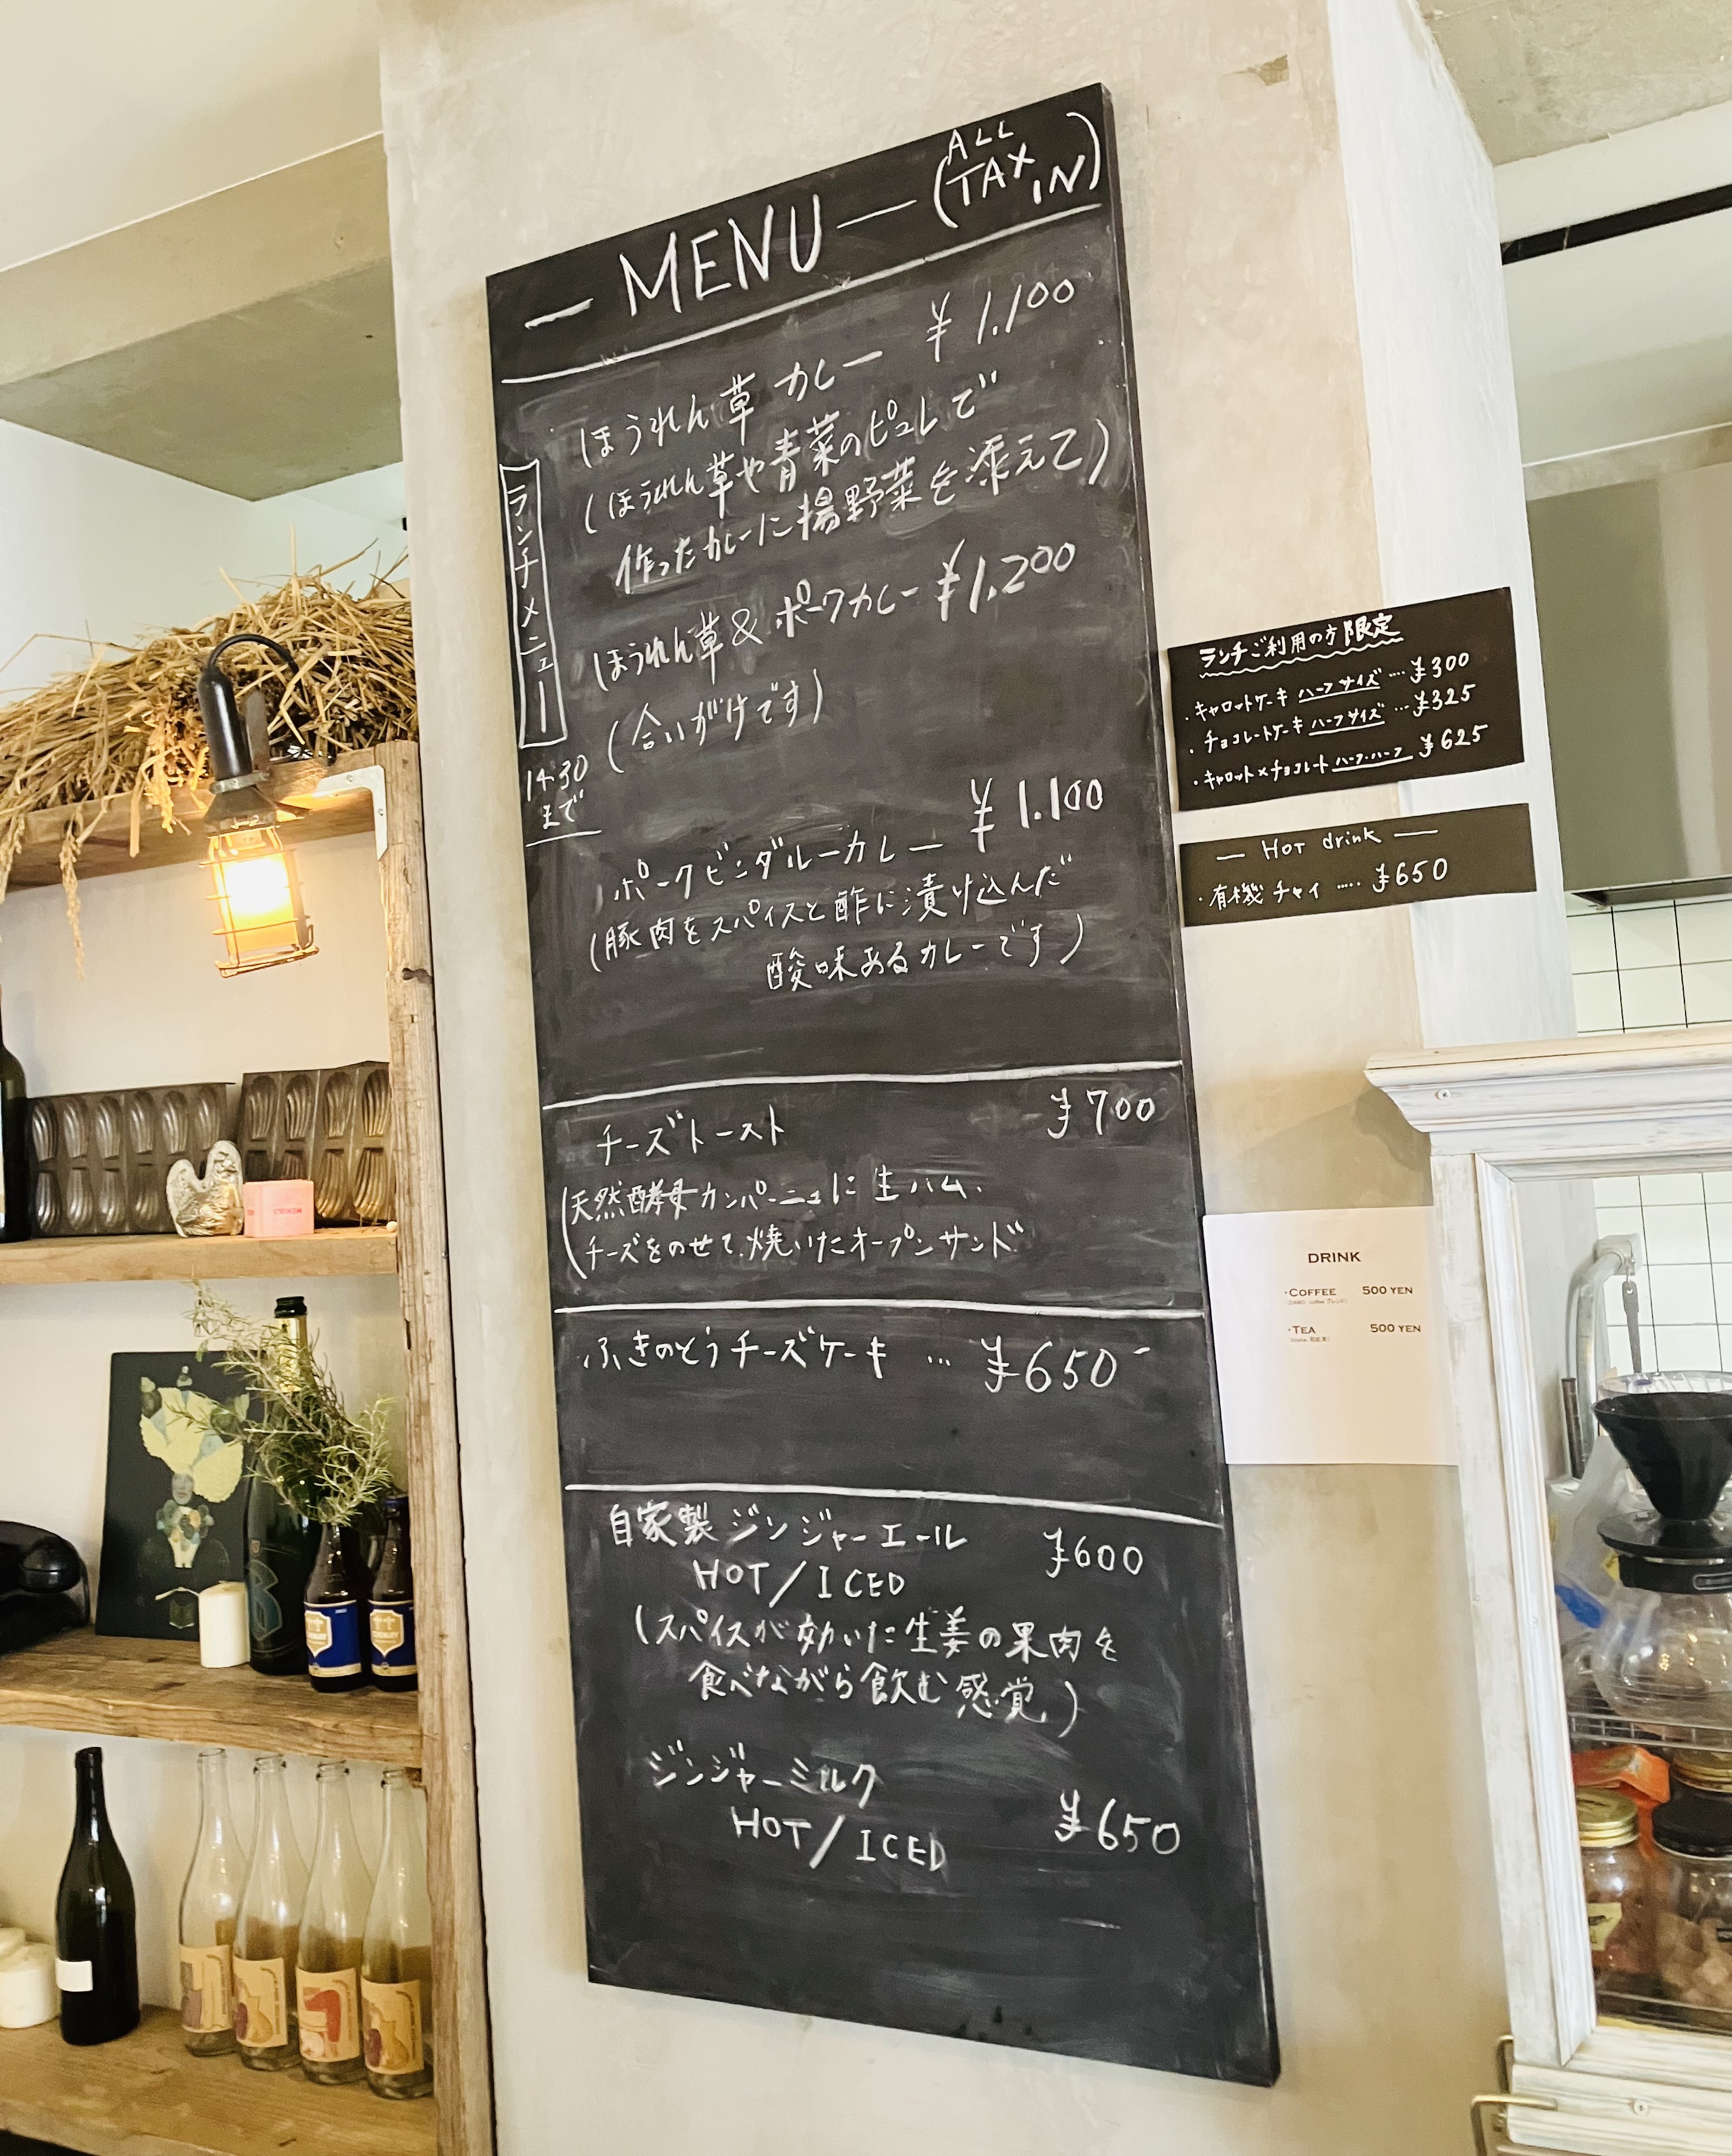 — MENU — (ALL TAX IN)
ほうれん草カレー ¥1.100
(ほうれん草や青菜のピュレで
作ったカレーに揚野菜を添えて)
ほうれん草&ポークカレー ¥1.200
(合いがけです)
ランチメニュー
14:30
まで
ポークビンダルーカレー ¥1.100
(豚肉をスパイスと酢に漬け込んだ
酸味あるカレーです)
チーズトースト ¥700
(天然酵母カンパーニュに生ハム、
チーズをのせて焼いたオープンサンド
・ふきのとうチーズケーキ … ¥650-
自家製ジンジャーエール ¥600
HOT/ICED
(スパイスが効いた生姜の果肉を
食べながら飲む感覚)
ジンジャーミルク
HOT/ICED ¥650
ランチご利用の方限定
・キャロットケーキ ハーフサイズ …. ¥300
・チョコレートケーキ ハーフサイズ … ¥325
・キャロット×チョコレート ハーフ・ハーフ ¥625
— Hot drink —
・有機チャイ ….. ¥650
DRINK
・COFFEE 500 YEN
・TEA 500 YEN